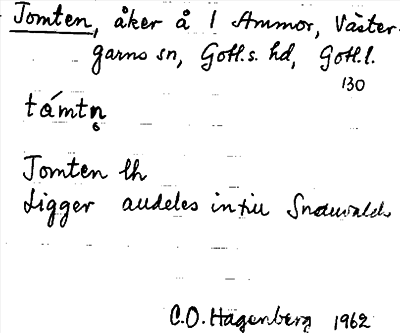 Tomten, åker å 1 Ammor, Väster-
garns sn, Gotl. s. hd, Gotl. l.
130
támtn̥
6
Tomten lh
Ligger alldeles intill Snauvalds
C.O. Hagenberg 1962